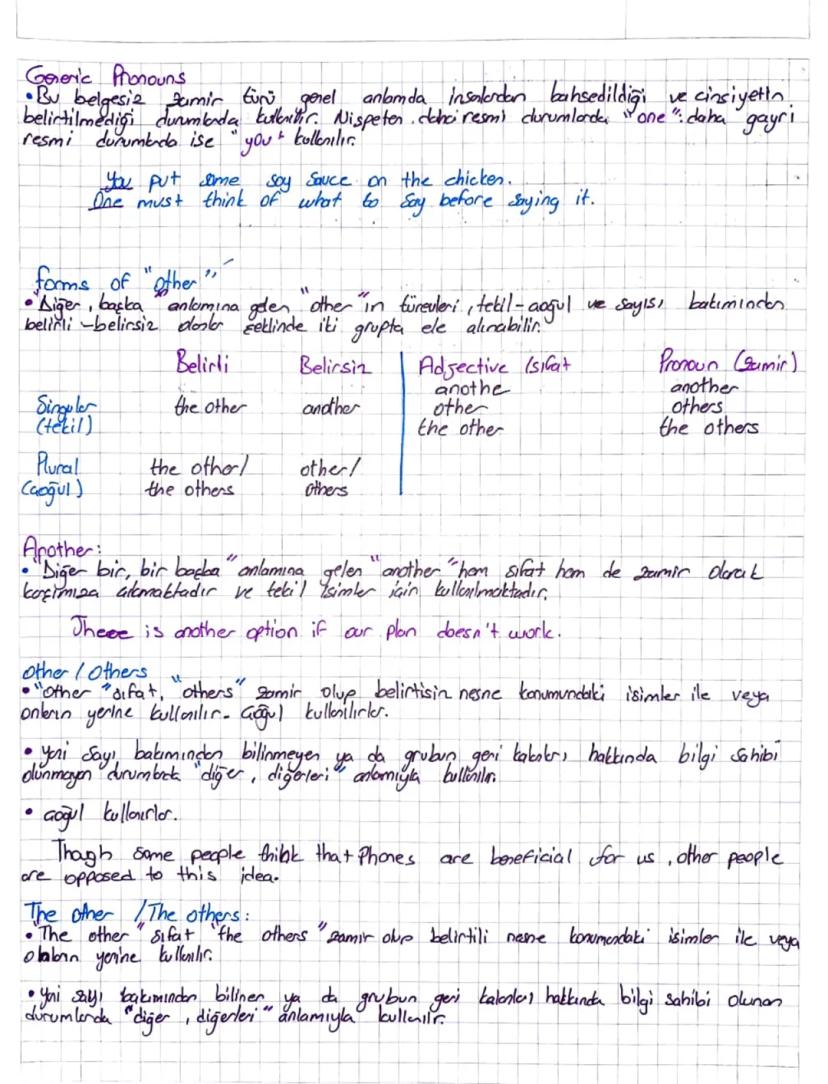 Generic Pronouns
• Bu belgesiz zamir türü genel anlamda insanlardan bahsedildiği ve cinsiyetin
belirtilmediği durumlarda kullanılır. Nispeten daha resmi durumlarda "one": daha gayri
resmi durumlarda ise "you" kullanılır.
You put some soy sauce on the chicken.
One must think of what to say before saying it.
forms of "other"
• "Diğer, başka" anlamına gelen "other"in türevleri, tekil-çoğul ve sayısı bakımından
belirli-belirsiz olanlar şeklinde iki grupta ele alınabilir.
Belirli Belirsiz Adjective (sıfat Pronoun (zamir)
anothe another
Singular the other another other others
(tekil) the other the others
Plural the other/ other/
(çoğul) the others others
Another:
• "Diğer bir, bir başka" anlamına gelen "another" hem sıfat hem de zamir olarak
karşımıza çıkmaktadır ve tekil isimler için kullanılmaktadır.
There is another option if our plan doesn't work.
Other / Others
• "Other" sıfat, "others" zamir olup belirtisin nesne konumundaki isimler ile veya
onların yerine kullanılır. Çoğul kullanılırlar.
• Yani sayı bakımından bilinmeyen ya da grubun geri kalanları hakkında bilgi sahibi
olunmayan durumlarda "diğer, diğerleri" anlamıyla kullanılır.
• Çoğul kullanırlar.
Thogh some people think that Phones are beneficial for us, other people
are opposed to this idea.
The other / The others:
• The other" sıfat "the others" zamir olup belirtili nesne konumundaki isimler ile veya
onların yerine kullanılır.
• Yani sayı bakımından bilinen ya da grubun geri kalanları hakkında bilgi sahibi olunan
durumlarda "diğer, diğerleri" anlamıyla kullanılır.